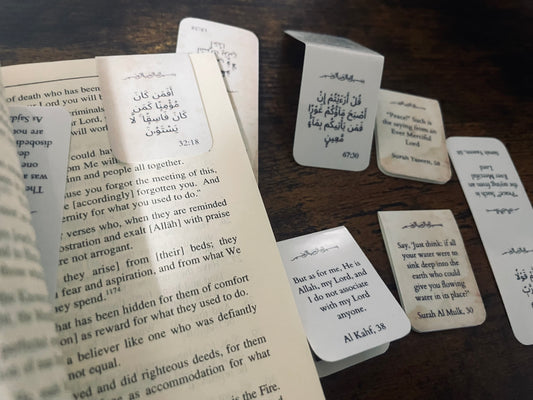 of death who has been
lord you will b
could have
m Me will
inn and people all together.
ause you forgot the meeting of this,
[accordingly] forgotten you. And
ernity for what you used to do."
verses who, when they are reminded
ostration and exalt [Allāh] with praise
re not arrogant.
they arise] from [their] beds; they
fear and aspiration, and from what We
ey spend.
has been hidden for them of comfort
on] as reward for what they used to do.
a believer like one who was defiantly
not equal.
ved and did righteous deeds, for them
ge as accommodation for what
e is the Fire.
أَفَمَن كَانَ
مُؤْمِنًا كَمَن
كَانَ فَاسِقًا ۚ لَّا
يَسْتَوُونَ
32:18
قُلْ أَرَأَيْتُمْ إِنْ
أَصْبَحَ مَاؤُكُمْ غَوْرًا
فَمَن يَأْتِيكُم بِمَاءٍ
مَّعِينٍ
67:30
"Peace!" Such is
the saying from an
Ever Merciful
Lord.
Surah Yaseen, 58
Surah Yaseen, 58
"Peace!" Such is
the saying from an
Ever Merciful
Lord.
But as for me, He is
Allah, my Lord, and
I do not associate
with my Lord
anyone.
Al Kahf, 38
Say, 'Just think: if all
your water were to
sink deep into the
earth who could
give you flowing
water in its place?'
Surah Al Mulk, 30